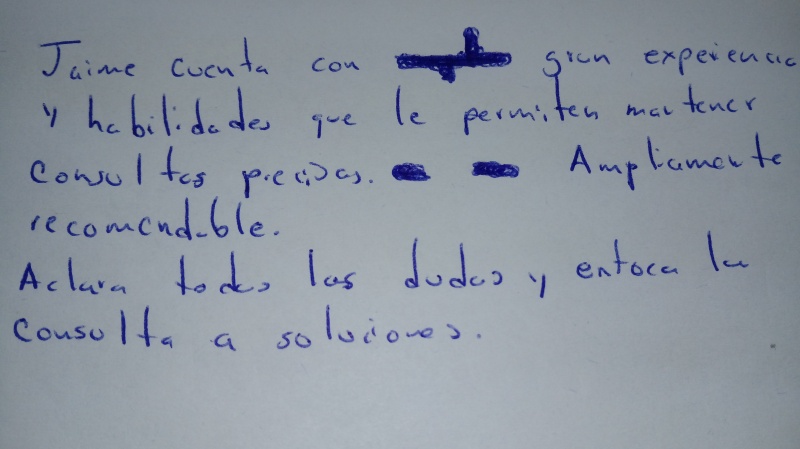 Jaime cuenta con gran experiencia
y habilidades que le permiten mantener
consultas precisas. Ampliamente
recomendable.
Aclara todas las dudas y enfoca la
consulta a soluciones.